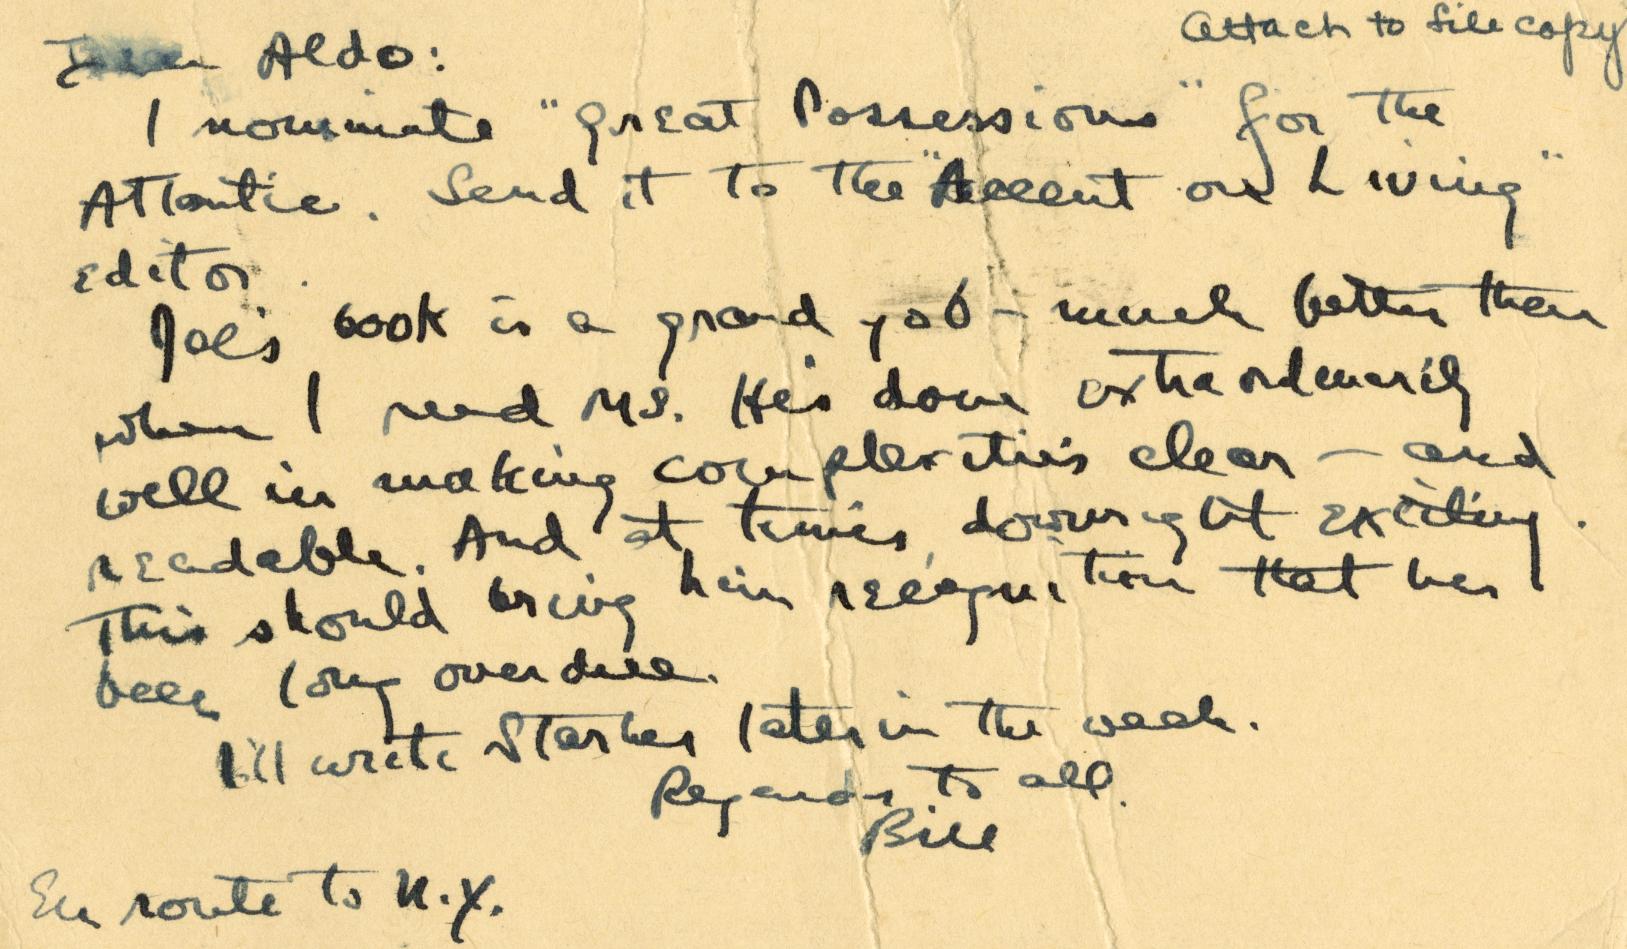 Attach to file copy
Dear Aldo:
I nominate "Great Possessions" for the
Atlantic. Send it to the "Accent on Living"
editor.
Joe's book is a grand job - much better than
when I read MS. He's done extraordinarily
well in making complexities clear - and
readable. And at times, downright exciting.
This should bring him recognition that has
been long overdue.
I'll write Starker later in the week.
Regards to all.
Bill
En route to N.Y.